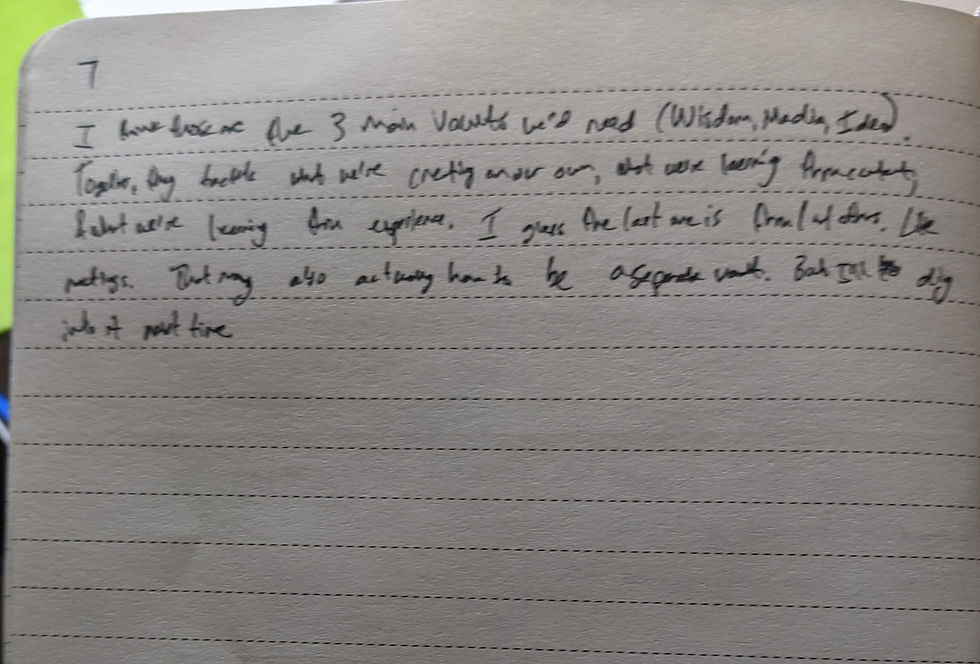 7
I think those are the 3 main vaults we'd need (Wisdom, Media, Idea).
Together, they tackle what we're creating on our own, what we're learning from content,
& what we're learning from experience. I guess the last one is from/w/ others. Like
meetings. That may also actually have to be a separate vault. But I'll dig
into it next time